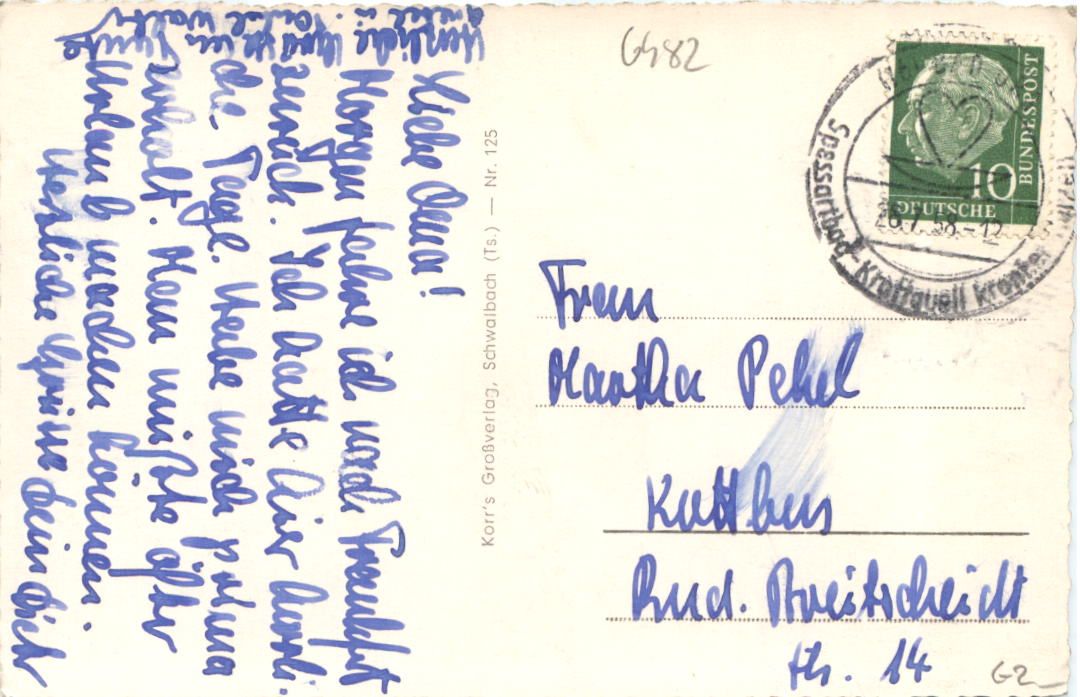 Liebe Oma!
Morgen fahre ich nach Frankfurt
zurück. Ich hatte hier herrli-
che Tage. Habe mich prima
erholt. Man müßte öfter
Urlaub machen können.
Herzliche Grüsse Dein Dich
Herzliche
u. Onkel
Korr's Großverlag, Schwalbach (Ts.) — Nr. 125
6482
BUNDESPOST
10
DEUTSCHE
26.7.58.-12
Spessartbad-Kraftquell kranker
Frau
Martha Pekel
Kottbus
Rud. Breitscheidt
Str. 14
G2